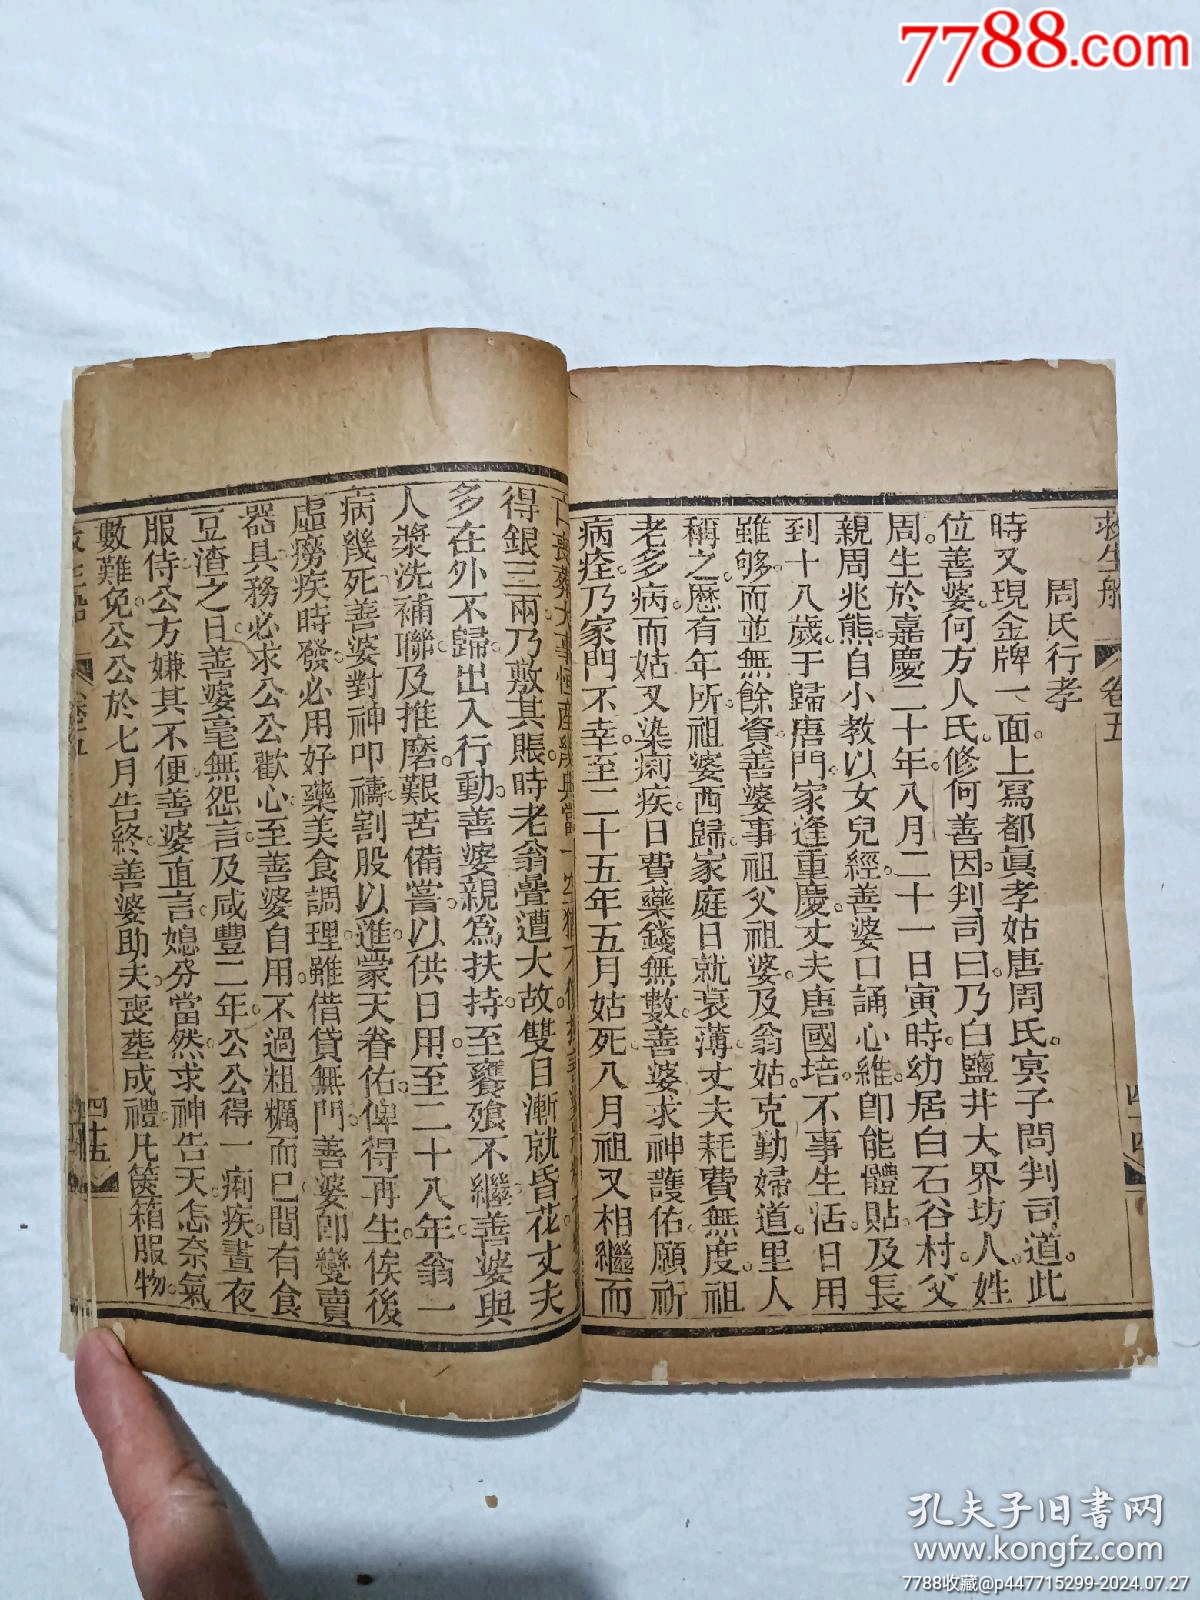 7788.com
救生船 卷五 四十四
周氏行孝
時又現金牌一面上寫都眞孝姑唐周氏冥子問判司道此
位善婆何方人氏修何善因判司曰乃白鹽井大界坊人姓
周生於嘉慶二十年八月二十一日寅時幼居白石谷村父
親周兆熊自小教以女兒經善婆口誦心維卽能體貼及長
到十八歲于歸唐門家逢重慶丈夫唐國培不事生活日用
雖够而並無餘資善婆事祖父祖婆及翁姑克勤婦道里人
稱之歷有年所祖婆西歸家庭日就衰薄丈夫耗費無度祖
老多病而姑又染痢疾日費藥錢無數善婆求神護佑願祈
病痊乃家門不幸至二十五年五月姑死八月祖又相繼而
亡喪葬大事恒產
得銀三兩乃敷其賬時老翁疊遭大故雙目漸就昏花丈夫
多在外不歸出入行動善婆親爲扶持至饔飧不繼善婆與
人漿洗補聯及推磨艱苦備嘗以供日用至二十八年翁一
病幾死善婆對神叩禱割股以進蒙天眷佑俾得再生俟後
虛癆疾時發必用好藥美食調理雖借貸無門善婆卽變賣
器具務必求公公歡心至善婆自用不過粗糲而已間有食
豆渣之日善婆毫無怨言及咸豐二年公公得一痢疾晝夜
服侍公方嫌其不便善婆直言媳分當然求神告天怎奈氣
數難免公公於七月告終善婆助夫喪葬成禮凡篋箱服物
四十五
孔夫子旧书网
www.kongfz.com
7788收藏@p447715299-2024.07.27